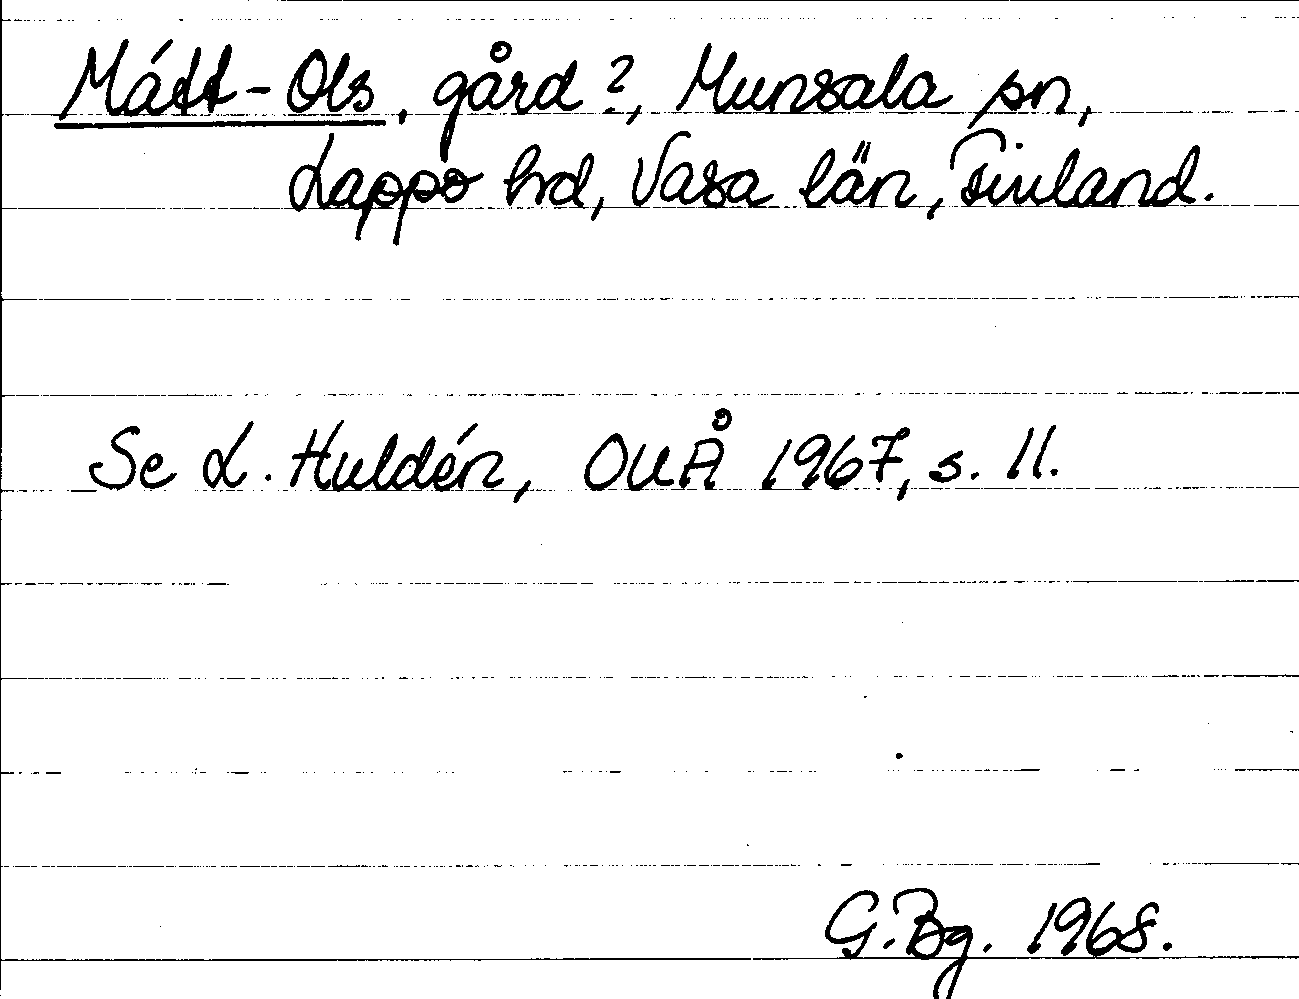 Mátt-Ols, gård?, Munsala sn,
Lappo hd, Vasa län, Finland.
Se L. Huldén, OUÅ 1967, s. 11.
G.Bg. 1968.